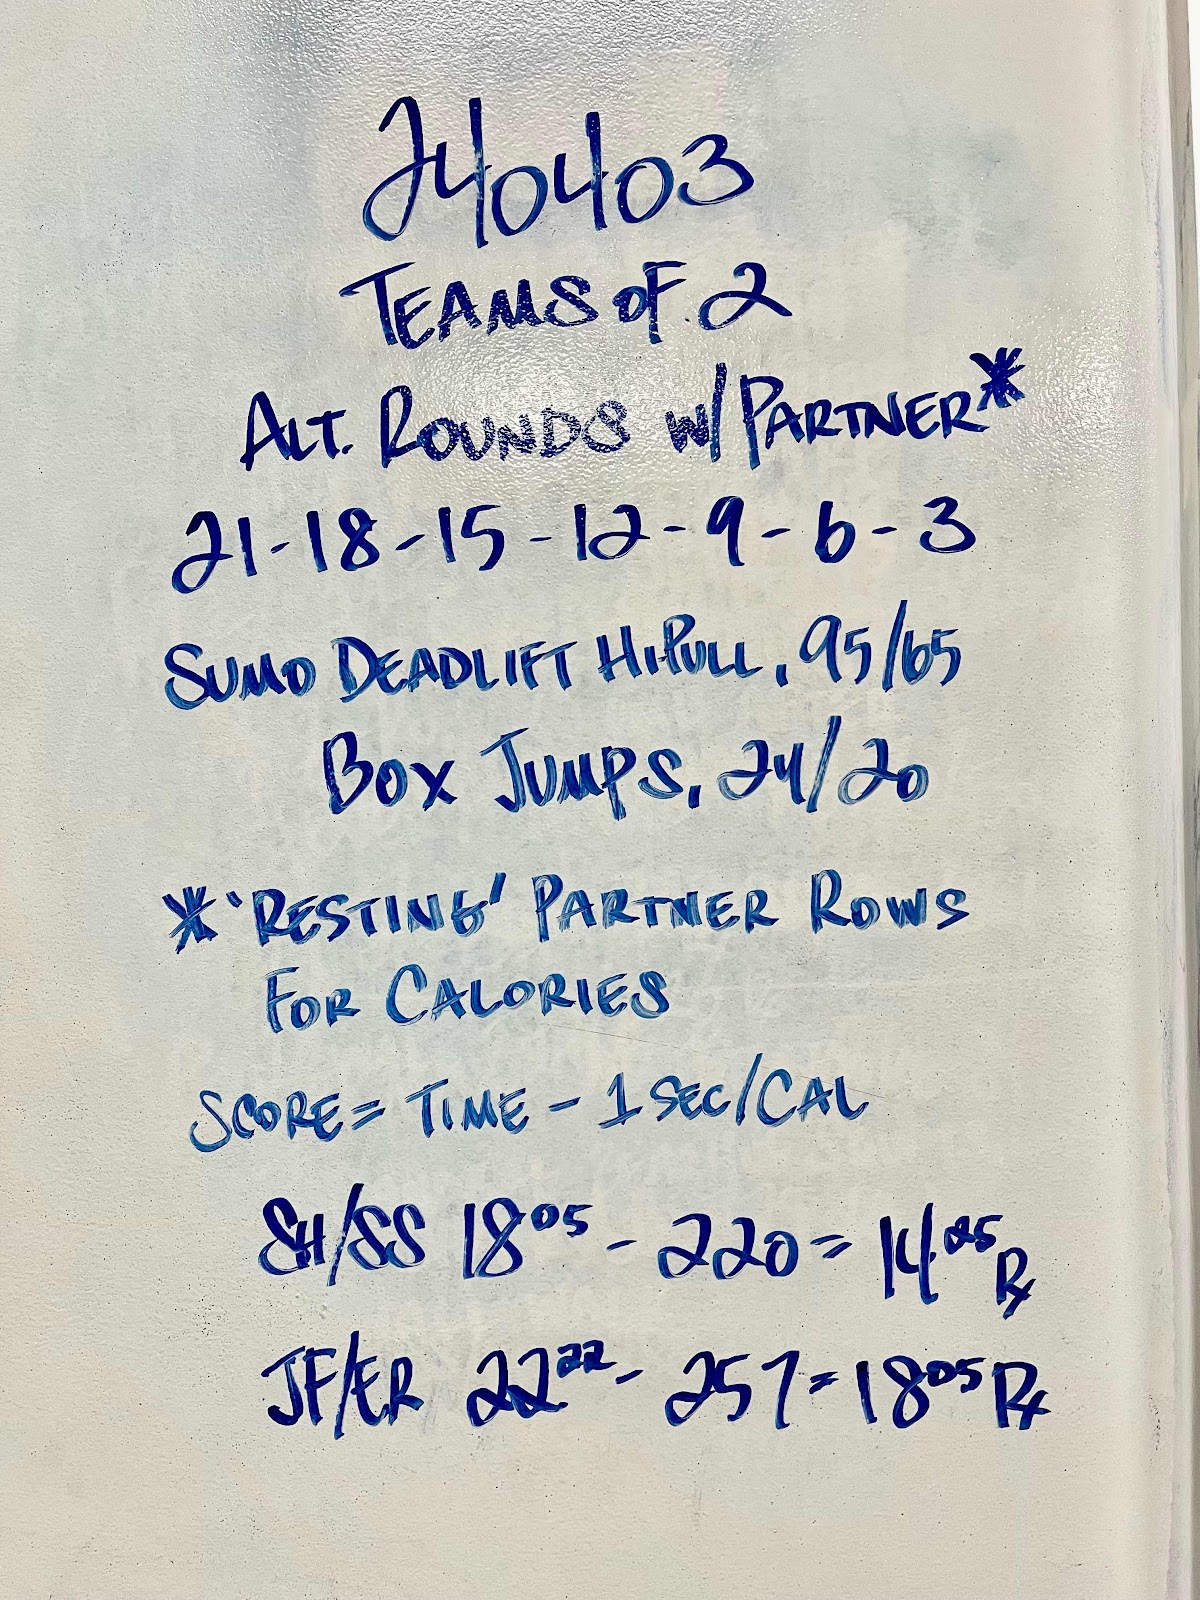 240403
TEAMS OF 2
ALT. ROUNDS W/PARTNER*
21-18-15-12-9-6-3
SUMO DEADLIFT HIPULL, 95/65
BOX JUMPS, 24/20
*'RESTING' PARTNER ROWS
FOR CALORIES
SCORE = TIME - 1 SEC/CAL
SH/SS 18⁰⁵ - 220 = 14²⁵ Rx
JF/ER 22²² - 257 = 18⁰⁵ Rx